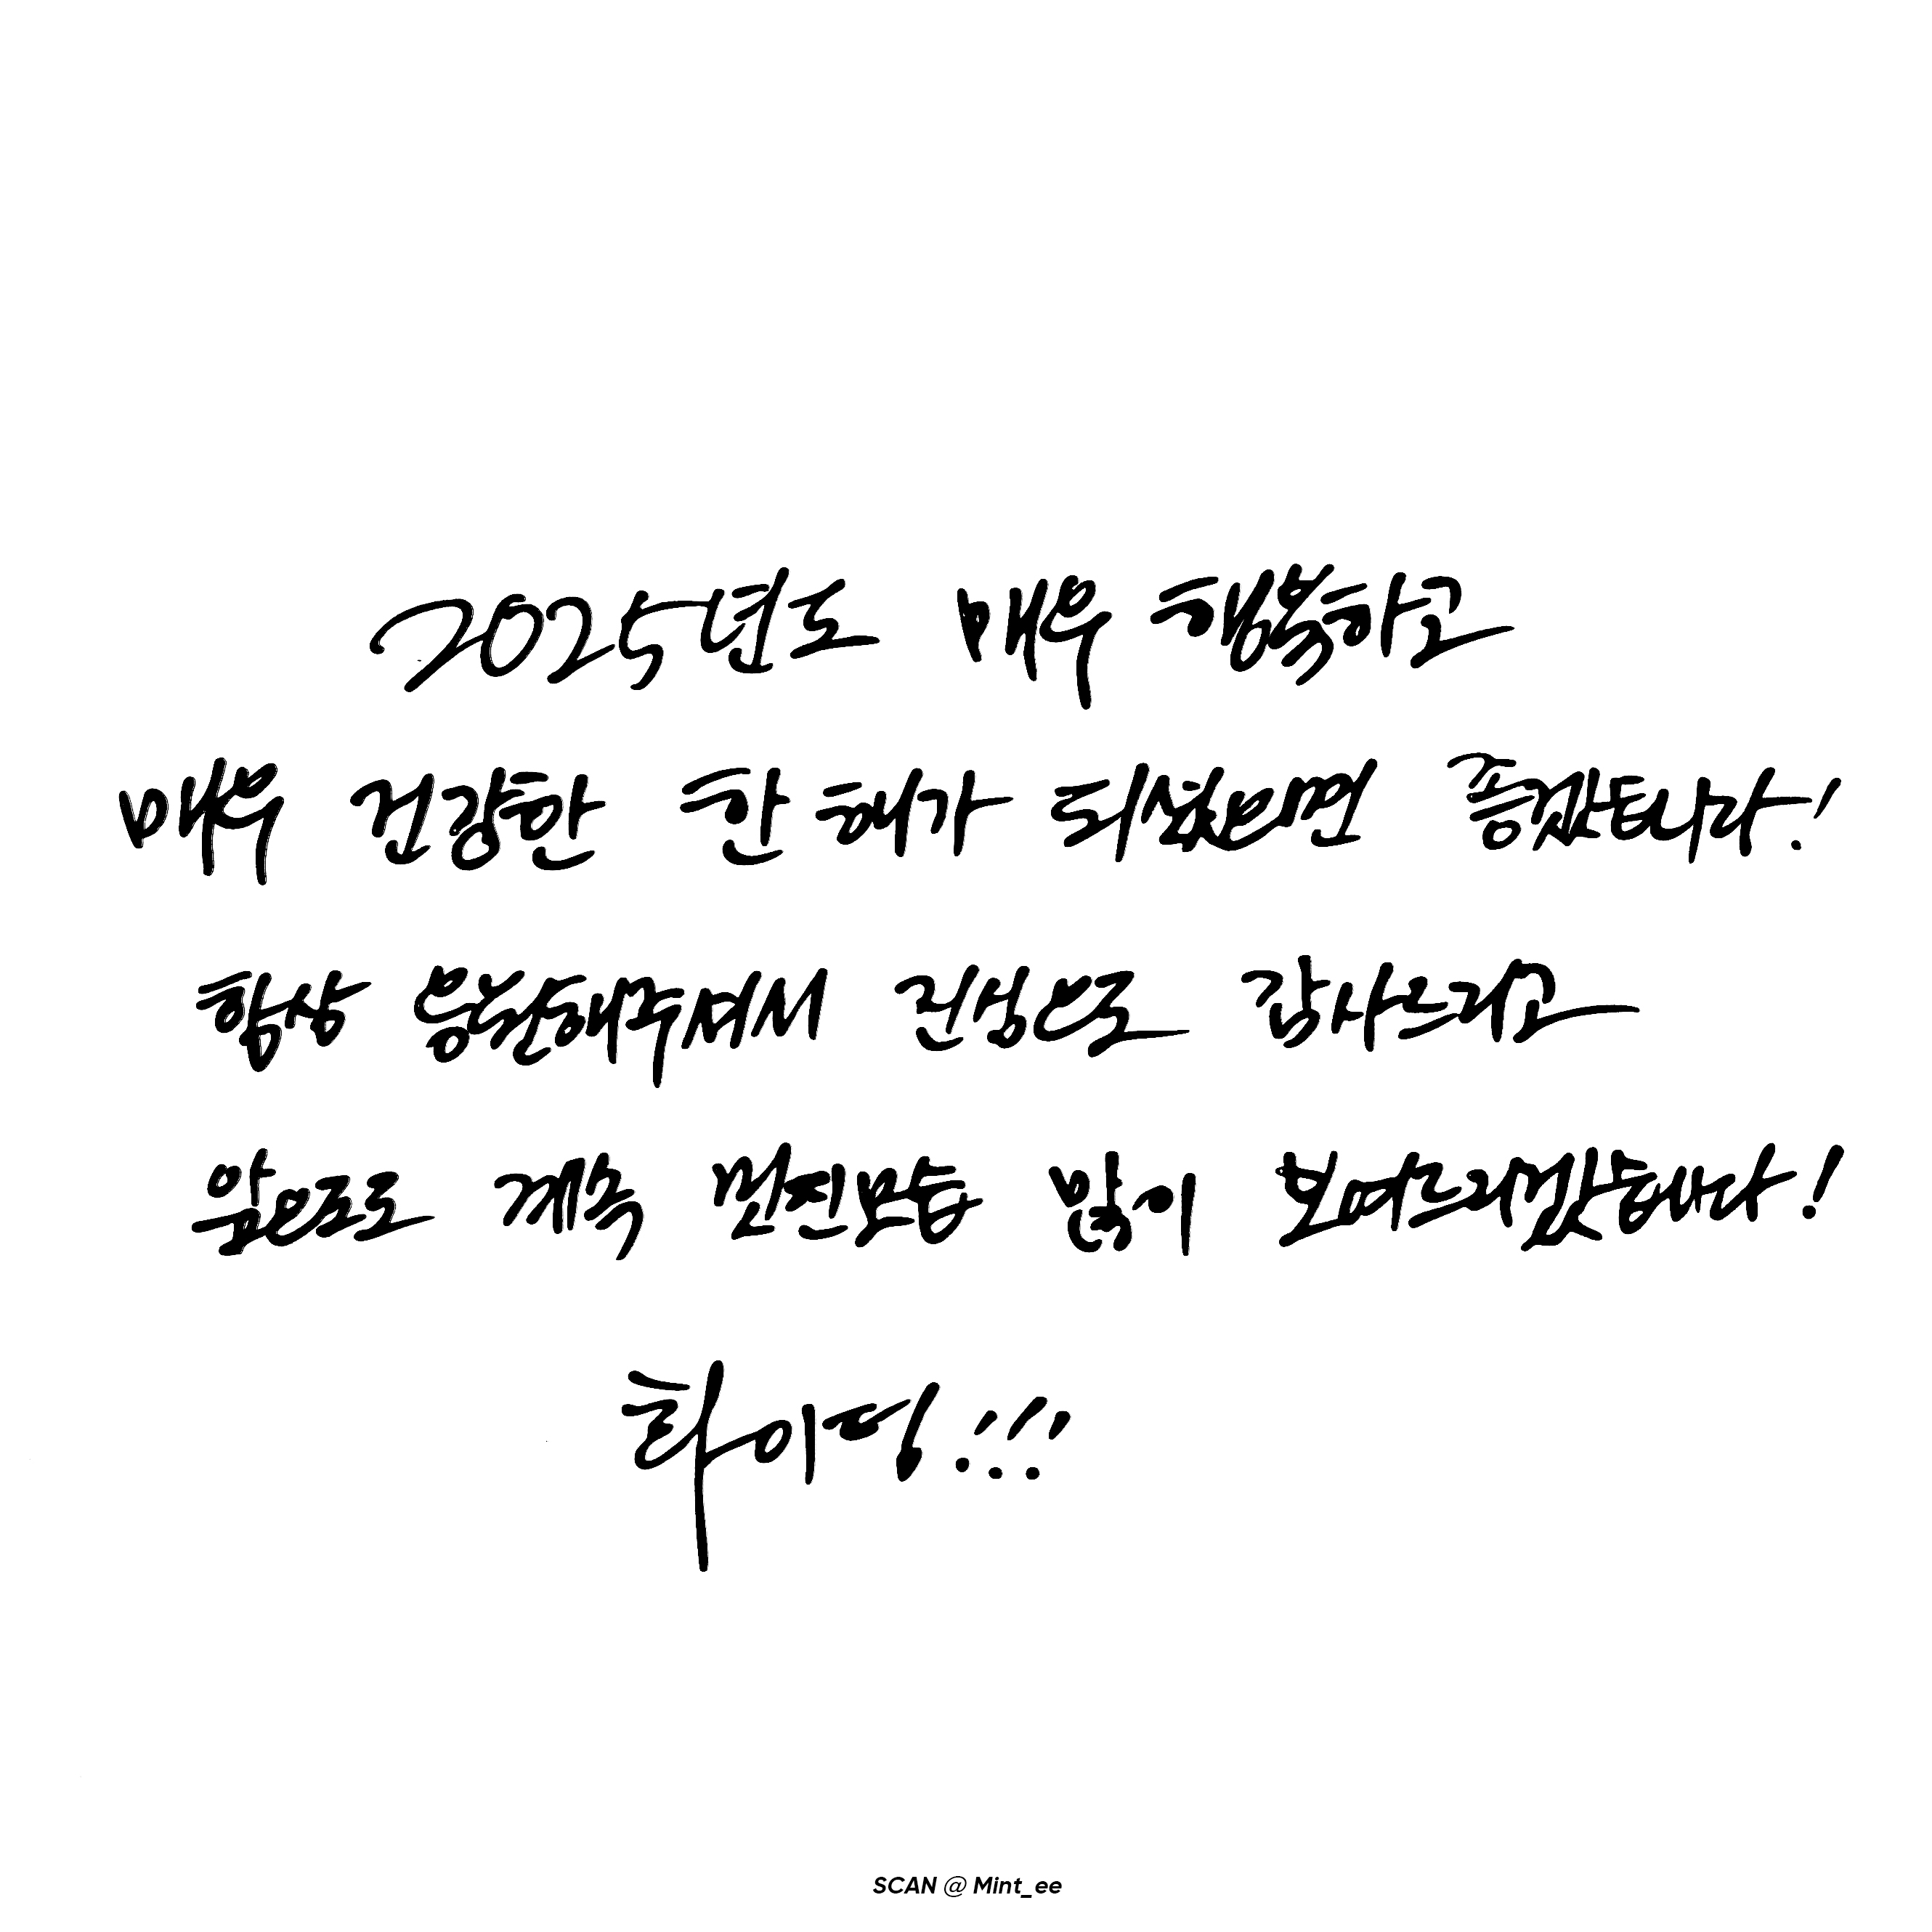 2025년도 매우 행복하고
매우 건강한 한 해가 되셨으면 좋겠습니다!
항상 응원해주셔서 진심으로 감사드리고
앞으로도 계속 멋진 모습 많이 보여드리겠습니다!
화이팅!!!
SCAN @ Mint_ee